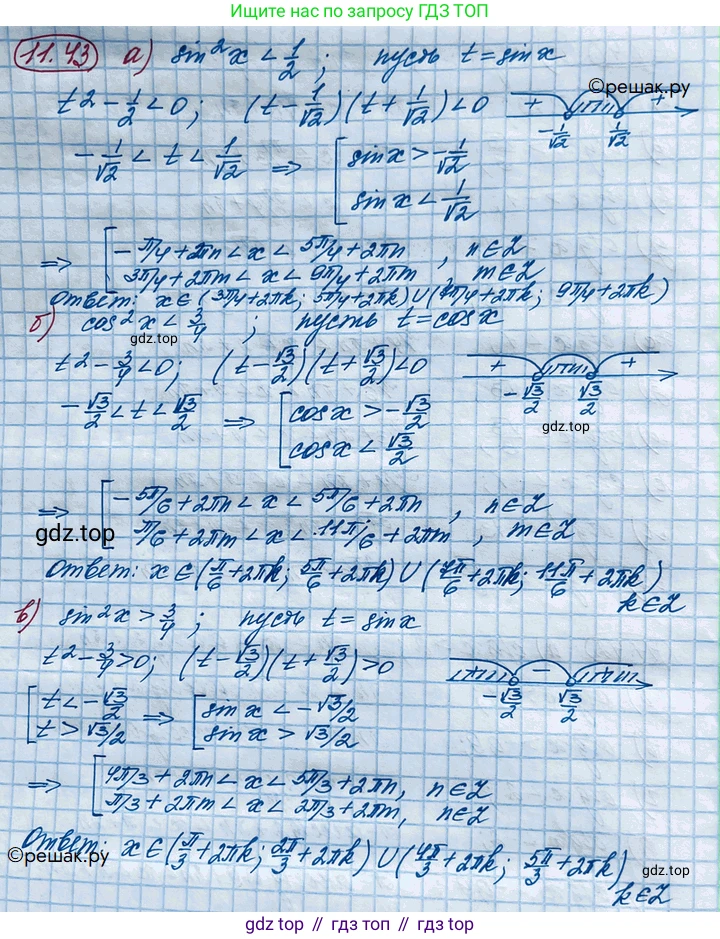 Ищите ответ по запросу ГДЗ ТОП
11.43 а) sin²x < 1/2 ; пусть t = sin x
©решак.ру
t² - 1/2 < 0 ; (t - 1/√2)(t + 1/√2) < 0 + + -1/√2 1/√2
-1/√2 < t < 1/√2 ⇒ [ sin x > -1/√2
sin x < 1/√2
⇒ [ -π/4 + 2πn < x < 5π/4 + 2πn , n∈Z
3π/4 + 2πm < x < 9π/4 + 2πm , m∈Z
Ответ: x∈(3π/4 + 2πk; 5π/4 + 2πk) ∪ (7π/4 + 2πk; 9π/4 + 2πk)
б) cos²x < 3/4 ; пусть t = cos x
gdz.top
t² - 3/4 < 0 ; (t - √3/2)(t + √3/2) < 0 + + -√3/2 √3/2
-√3/2 < t < √3/2 ⇒ [ cos x > -√3/2
cos x < √3/2
gdz.top
⇒ [ -5π/6 + 2πn < x < 5π/6 + 2πn , n∈Z
π/6 + 2πm < x < 11π/6 + 2πm , m∈Z
gdz.top
Ответ: x∈(π/6 + 2πk; 5π/6 + 2πk) ∪ (7π/6 + 2πk; 11π/6 + 2πk)
k∈Z
в) sin²x > 3/4 ; пусть t = sin x
t² - 3/4 > 0 ; (t - √3/2)(t + √3/2) > 0 - -√3/2 √3/2
[ t < -√3/2 ⇒ [ sin x < -√3/2
t > √3/2 sin x > √3/2
⇒ [ 4π/3 + 2πn < x < 5π/3 + 2πn, n∈Z
π/3 + 2πm < x < 2π/3 + 2πm, n∈Z
Ответ: x∈(π/3 + 2πk; 2π/3 + 2πk) ∪ (4π/3 + 2πk; 5π/3 + 2πk)
©решак.ру
gdz.top
k∈Z
gdz.top // гдз.топ // gdz.top // гдз.топ // gdz.top